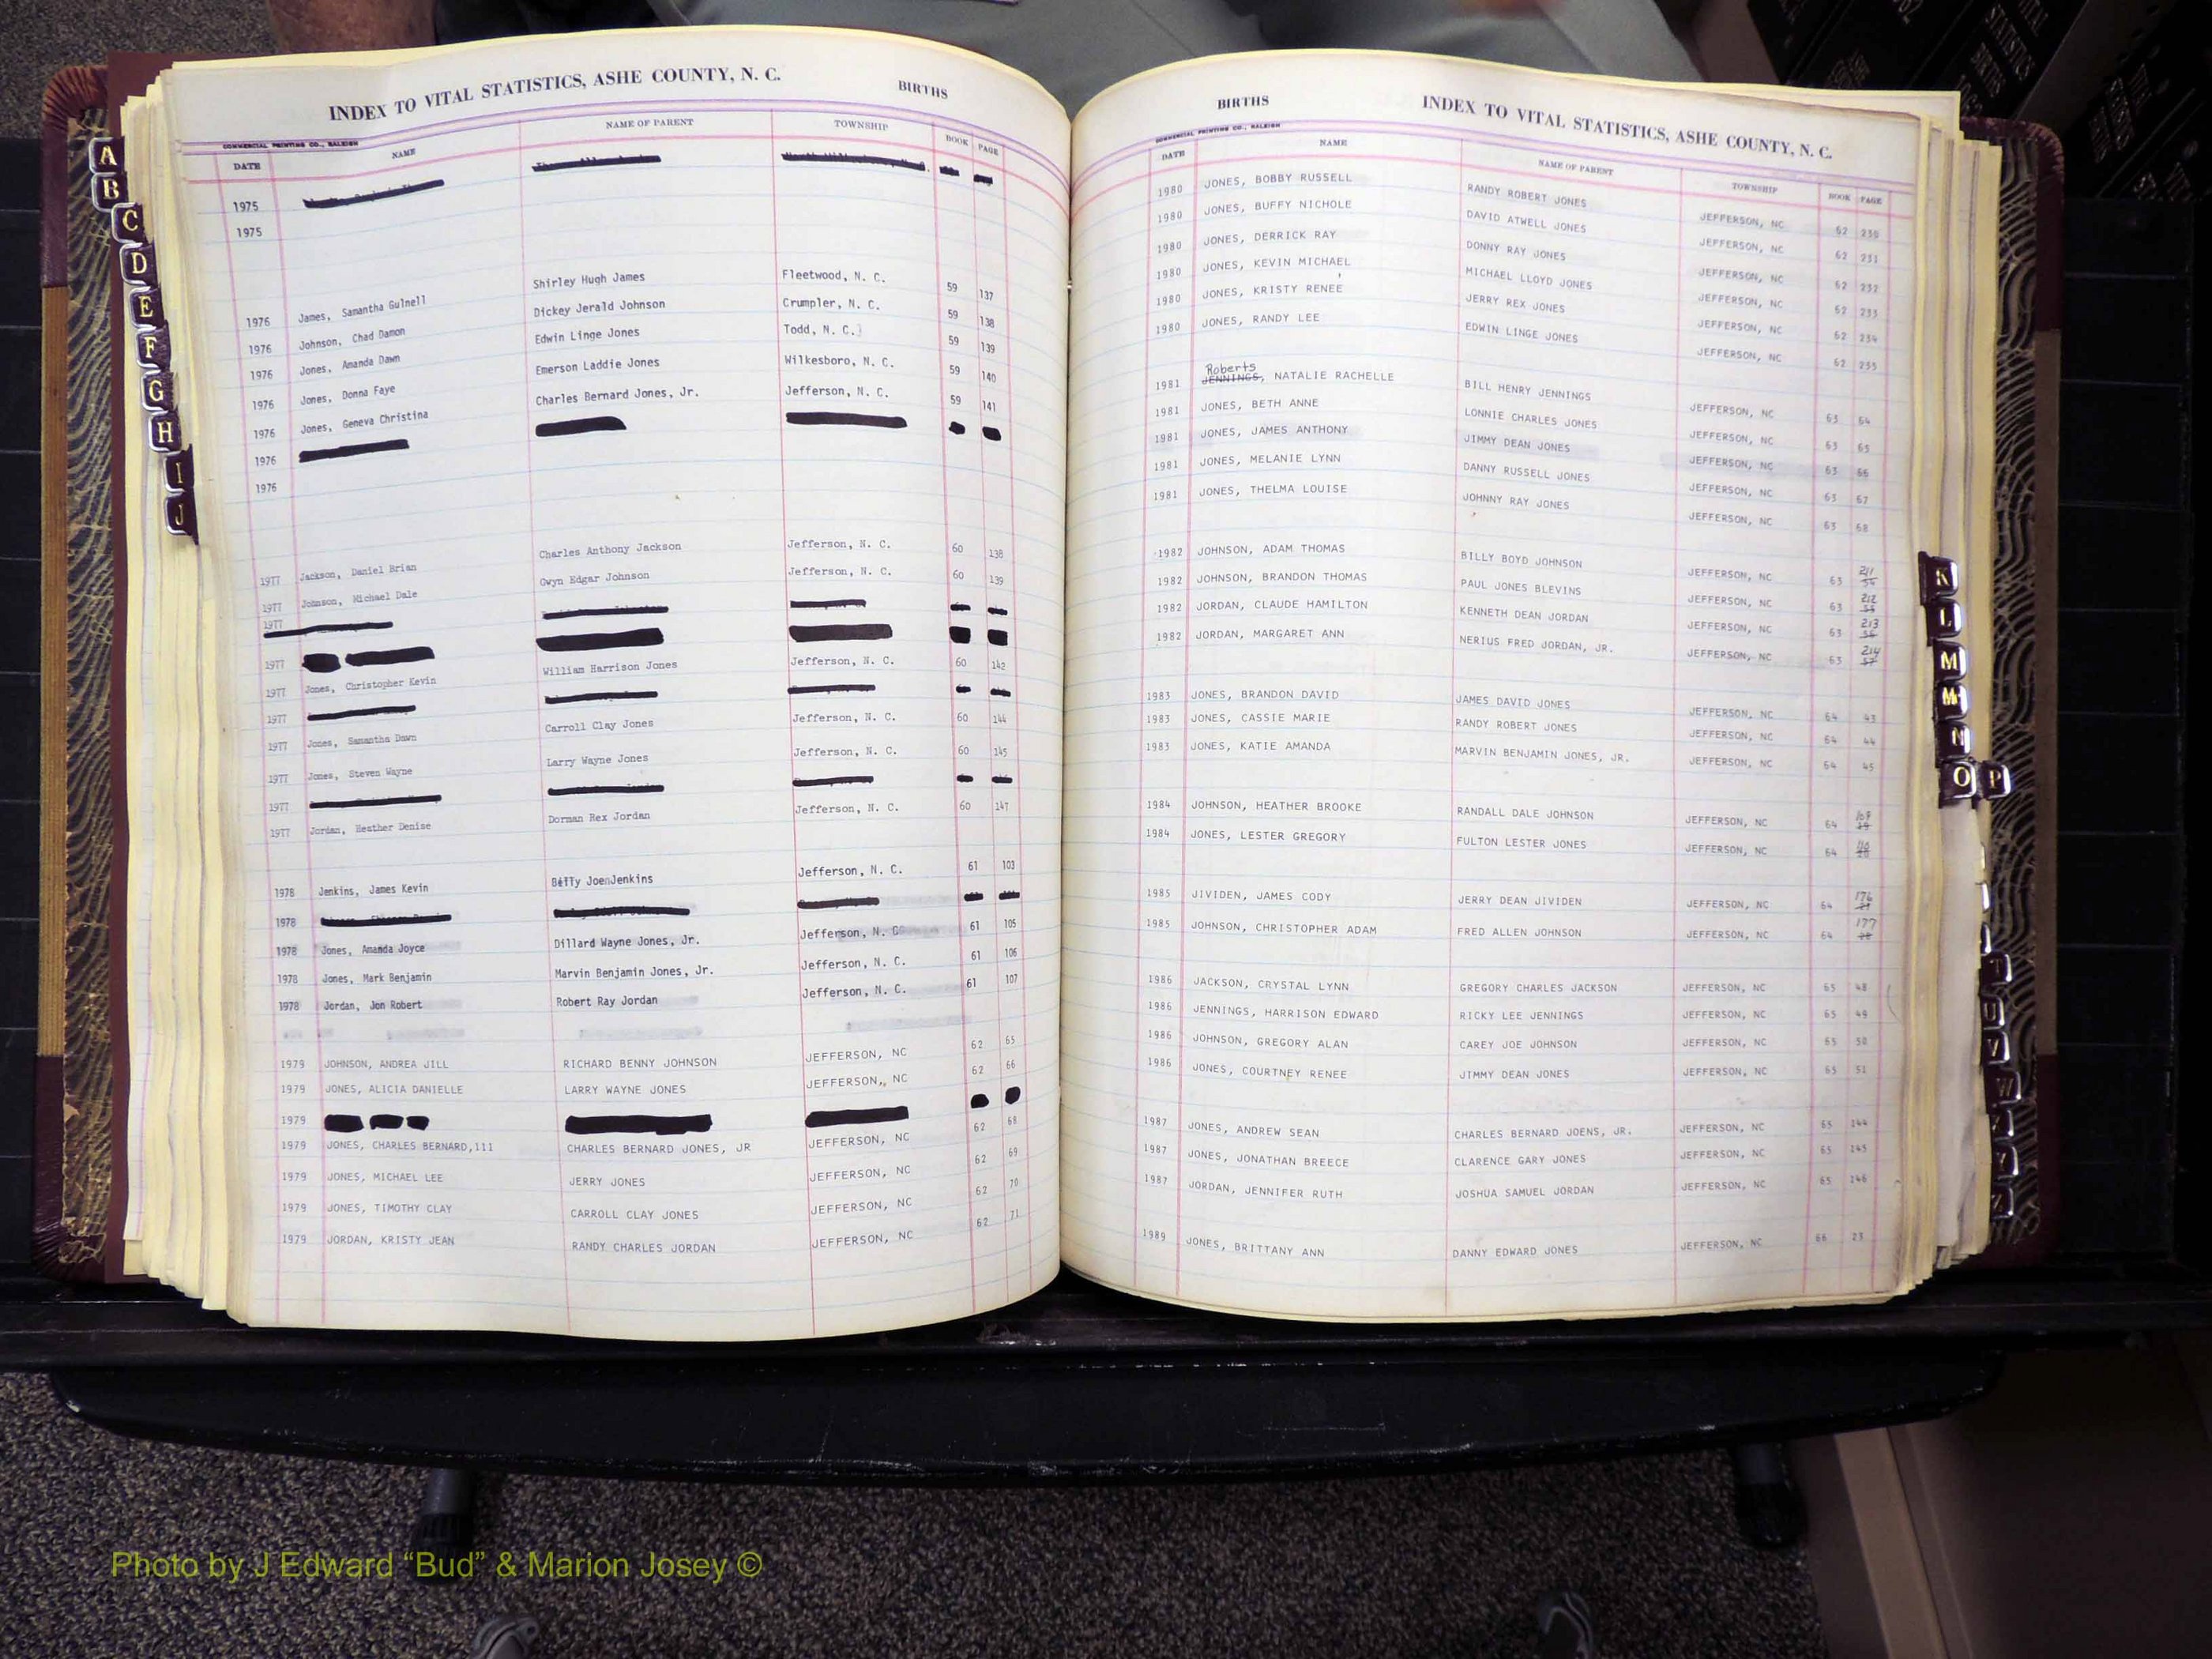 INDEX TO VITAL STATISTICS, ASHE COUNTY, N. C. BIRTHS
COMMERCIAL PRINTING CO., RALEIGH
DATE NAME NAME OF PARENT TOWNSHIP BOOK PAGE
1975
1975
1976 James, Samantha Gulnell Shirley Hugh James Fleetwood, N. C. 59 137
1976 Johnson, Chad Damon Dickey Jerald Johnson Crumpler, N. C. 59 138
1976 Jones, Amanda Dawn Edwin Linge Jones Todd, N. C. 59 139
1976 Jones, Donna Faye Emerson Laddie Jones Wilkesboro, N. C. 59 140
1976 Jones, Geneva Christina Charles Bernard Jones, Jr. Jefferson, N. C. 59 141
1976
1976
1977 Jackson, Daniel Brian Charles Anthony Jackson Jefferson, N. C. 60 138
1977 Johnson, Michael Dale Gwyn Edgar Johnson Jefferson, N. C. 60 139
1977
1977
1977 Jones, Christopher Kevin William Harrison Jones Jefferson, N. C. 60 142
1977
1977 Jones, Samantha Dawn Carroll Clay Jones Jefferson, N. C. 60 144
1977 Jones, Steven Wayne Larry Wayne Jones Jefferson, N. C. 60 145
1977
1977 Jordan, Heather Denise Dorman Rex Jordan Jefferson, N. C. 60 147
1978 Jenkins, James Kevin Billy Joe Jenkins Jefferson, N. C. 61 103
1978
1978 Jones, Amanda Joyce Dillard Wayne Jones, Jr. Jefferson, N. C. 61 105
1978 Jones, Mark Benjamin Marvin Benjamin Jones, Jr. Jefferson, N. C. 61 106
1978 Jordan, Jon Robert Robert Ray Jordan Jefferson, N. C. 61 107
1979 JOHNSON, ANDREA JILL RICHARD BENNY JOHNSON JEFFERSON, NC 62 65
1979 JONES, ALICIA DANIELLE LARRY WAYNE JONES JEFFERSON,, NC 62 66
1979
1979 JONES, CHARLES BERNARD,111 CHARLES BERNARD JONES, JR JEFFERSON, NC 62 68
1979 JONES, MICHAEL LEE JERRY JONES JEFFERSON, NC 62 69
1979 JONES, TIMOTHY CLAY CARROLL CLAY JONES JEFFERSON, NC 62 70
1979 JORDAN, KRISTY JEAN RANDY CHARLES JORDAN JEFFERSON, NC 62 71
A
B
C
D
E
F
G
H
I
J
BIRTHS INDEX TO VITAL STATISTICS, ASHE COUNTY, N. C.
COMMERCIAL PRINTING CO., RALEIGH
DATE NAME NAME OF PARENT TOWNSHIP BOOK PAGE
1980 JONES, BOBBY RUSSELL RANDY ROBERT JONES JEFFERSON, NC 62 230
1980 JONES, BUFFY NICHOLE DAVID ATWELL JONES JEFFERSON, NC 62 231
1980 JONES, DERRICK RAY DONNY RAY JONES JEFFERSON, NC 62 232
1980 JONES, KEVIN MICHAEL MICHAEL LLOYD JONES JEFFERSON, NC 62 233
1980 JONES, KRISTY RENEE JERRY REX JONES JEFFERSON, NC 62 234
1980 JONES, RANDY LEE EDWIN LINGE JONES JEFFERSON, NC 62 235
Roberts
1981 JENNINGS, NATALIE RACHELLE BILL HENRY JENNINGS JEFFERSON, NC 63 64
1981 JONES, BETH ANNE LONNIE CHARLES JONES JEFFERSON, NC 63 65
1981 JONES, JAMES ANTHONY JIMMY DEAN JONES JEFFERSON, NC 63 66
1981 JONES, MELANIE LYNN DANNY RUSSELL JONES JEFFERSON, NC 63 67
1981 JONES, THELMA LOUISE JOHNNY RAY JONES JEFFERSON, NC 63 68
1982 JOHNSON, ADAM THOMAS BILLY BOYD JOHNSON JEFFERSON, NC 63 211
1982 JOHNSON, BRANDON THOMAS PAUL JONES BLEVINS JEFFERSON, NC 63 212
1982 JORDAN, CLAUDE HAMILTON KENNETH DEAN JORDAN JEFFERSON, NC 63 213
1982 JORDAN, MARGARET ANN NERIUS FRED JORDAN, JR. JEFFERSON, NC 63 214
1983 JONES, BRANDON DAVID JAMES DAVID JONES JEFFERSON, NC 64 43
1983 JONES, CASSIE MARIE RANDY ROBERT JONES JEFFERSON, NC 64 44
1983 JONES, KATIE AMANDA MARVIN BENJAMIN JONES, JR. JEFFERSON, NC 64 45
1984 JOHNSON, HEATHER BROOKE RANDALL DALE JOHNSON JEFFERSON, NC 64 109
1984 JONES, LESTER GREGORY FULTON LESTER JONES JEFFERSON, NC 64 110
1985 JIVIDEN, JAMES CODY JERRY DEAN JIVIDEN JEFFERSON, NC 64 176
1985 JOHNSON, CHRISTOPHER ADAM FRED ALLEN JOHNSON JEFFERSON, NC 64 177
1986 JACKSON, CRYSTAL LYNN GREGORY CHARLES JACKSON JEFFERSON, NC 65 48
1986 JENNINGS, HARRISON EDWARD RICKY LEE JENNINGS JEFFERSON, NC 65 49
1986 JOHNSON, GREGORY ALAN CAREY JOE JOHNSON JEFFERSON, NC 65 50
1986 JONES, COURTNEY RENEE JIMMY DEAN JONES JEFFERSON, NC 65 51
1987 JONES, ANDREW SEAN CHARLES BERNARD JOENS, JR. JEFFERSON, NC 65 144
1987 JONES, JONATHAN BREECE CLARENCE GARY JONES JEFFERSON, NC 65 145
1987 JORDAN, JENNIFER RUTH JOSHUA SAMUEL JORDAN JEFFERSON, NC 65 146
1989 JONES, BRITTANY ANN DANNY EDWARD JONES JEFFERSON, NC 66 23
K
L
M
N
O P
T
U
V
W
Photo by J Edward “Bud” & Marion Josey ©